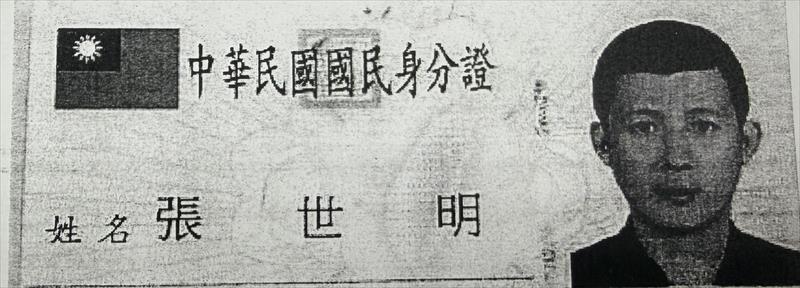 中華民國國民身分證
姓名 張世明